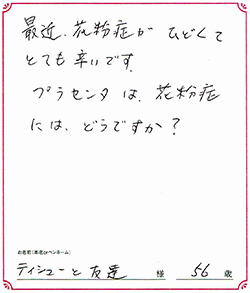 最近、花粉症が ひどくて
とても辛いです。
プラセンタは、花粉症
には、どうですか？
お名前(本名orペンネーム)
ティシューと友達 様 56 歳